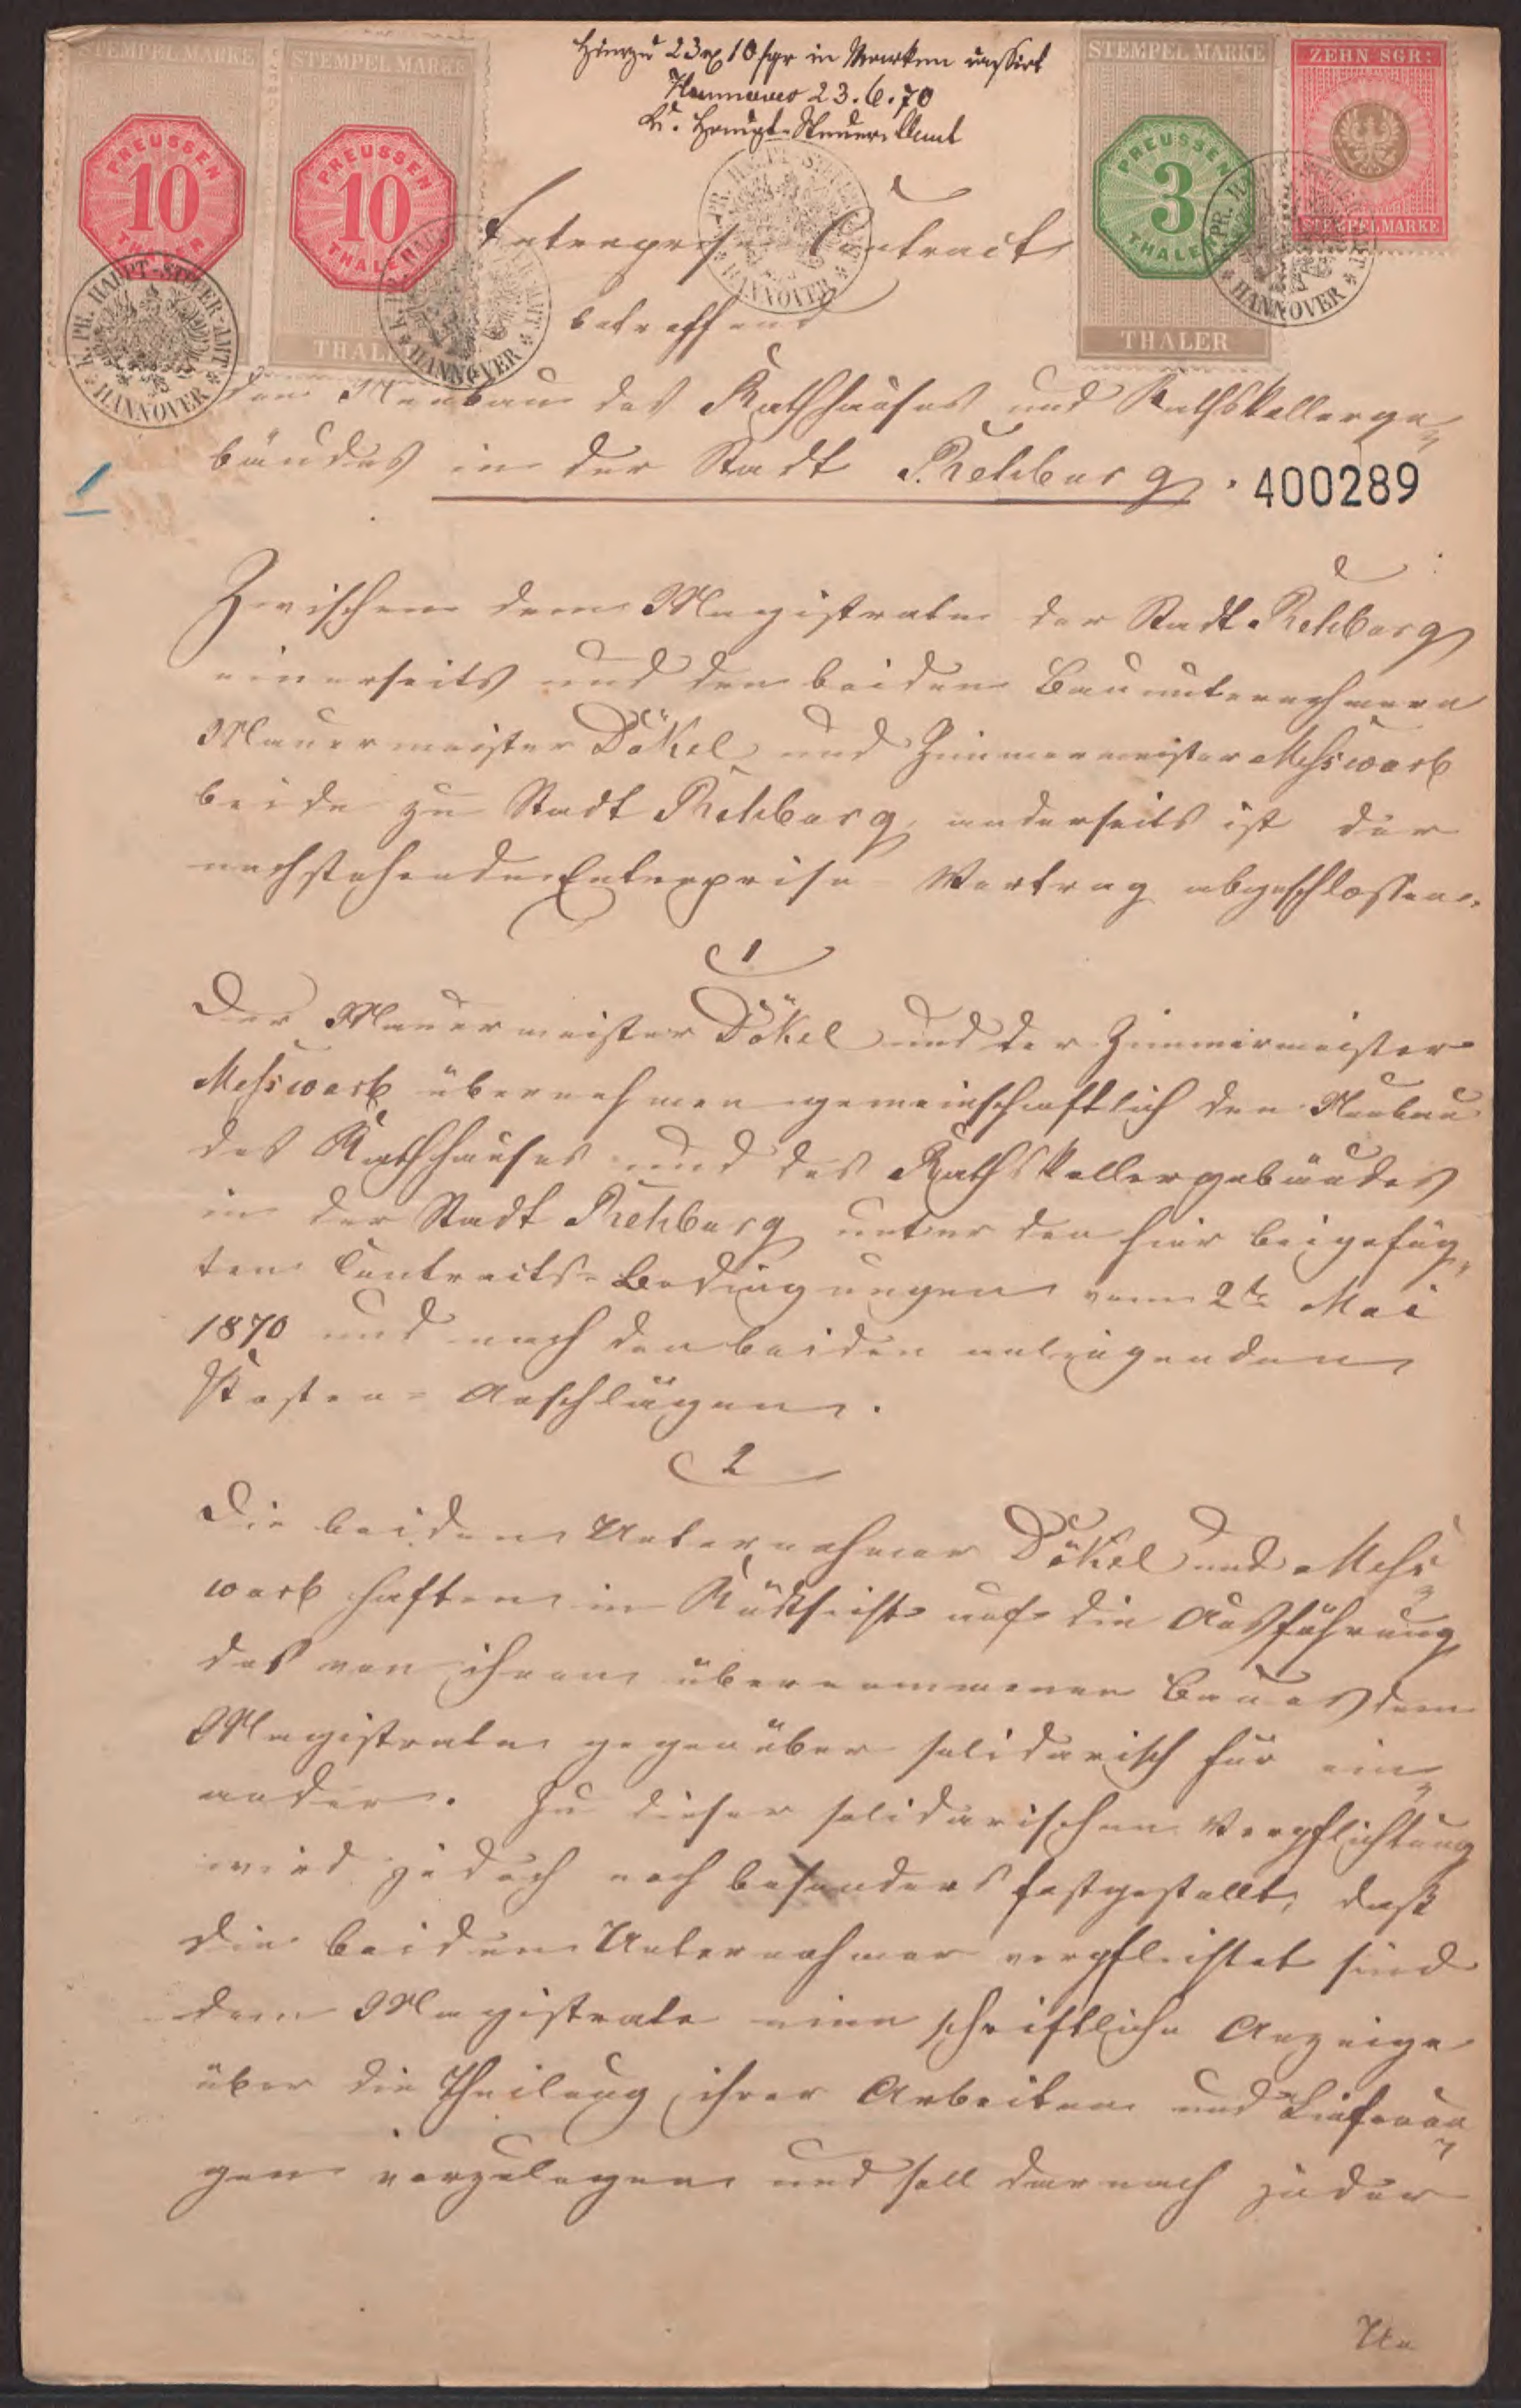 STEMPEL MARKE
PREUSSEN
10
THALER
STEMPEL MARKE
PREUSSEN
10
THALER
THALER
Hierzu 23 rℓ 10 sgr in Marken cassirt
Hannover 23.6.70
K. Haupt-Steuer-Amt
STEMPEL MARKE
PREUSSEN
3
THALER
THALER
ZEHN SGR:
STEMPELMARKE
K. PR. HAUPT-STEUER-AMT
* HANNOVER *
K. PR. HAUPT-STEUER-AMT
* HANNOVER *
K. PR. HAUPT-STEUER-AMT
* HANNOVER *
K. PR. HAUPT-STEUER-AMT
* HANNOVER *
Enterprise Contract
betreffend
den Neubau des Rathhauses und Rathskellerge-
bäudes in der Stadt Rehburg.
400289
1
Zwischen dem Magistrate der Stadt Rehburg
einerseits und den beiden Bauunternehmern
Mauermeister Dökel und Zimmermeister Meßwarb
beide zu Stadt Rehburg, anderseits ist der
nachstehende Enterprise-Vertrag abgeschlossen.
1
Der Mauermeister Dökel und der Zimmermeister
Meßwarb übernehmen gemeinschaftlich den Neubau
des Rathhauses und des Rathskellergebäudes
in der Stadt Rehburg unter den hier beigefüg-
ten Contracts-Bedingungen vom 2te Mai
1870 und nach den beiden anliegenden
Kosten-Anschlägen.
2
Die beiden Unternehmer Dökel und Meß-
warb haften in Rücksicht auf die Ausführung
des von ihnen übernommenen Baues dem
Magistrate gegenüber solidarisch für ein-
ander. Zu dieser solidarischen Verpflichtung
wird jedoch noch besonders festgestellt, daß
die beiden Unternehmer verpflichtet sind
dem Magistrate eine schriftliche Anzeige
über die Theilung ihrer Arbeiten und Lieferun-
gen vorzulegen und soll darnach jeder
Un